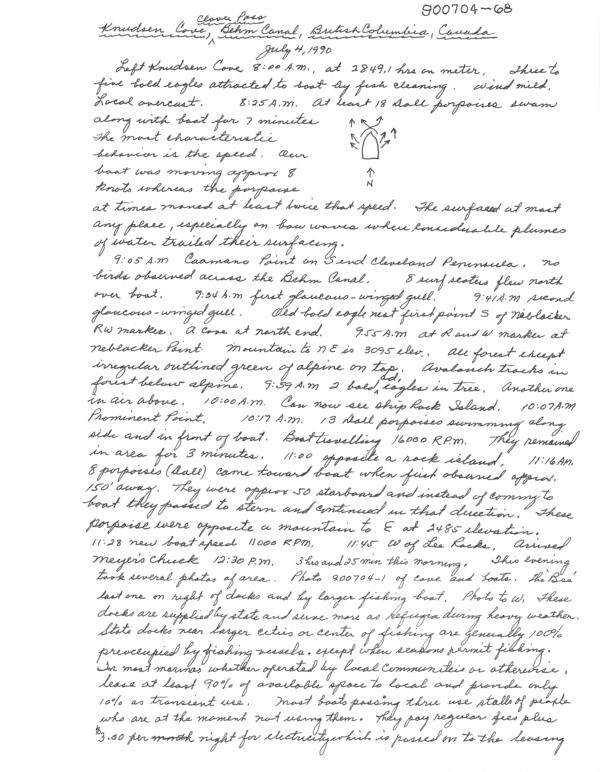 900704-68
Clover Pass
Knudsen Cove, Behm Canal, British Columbia, Canada
July 4, 1990
Left Knudsen Cove 8:00 A.M., at 2849.1 hrs on meter. Three to
five bald eagles attracted to boat by fish cleaning. Wind mild.
Local overcast. 8:25 A.M. At least 18 Dall porpoises swam
along with boat for 7 minutes
The most characteristic
behavior is the speed. Our
boat was moving approx 8
knots whereas the porpoise
N
at times moved at least twice that speed. The surfaced at most
any place, especially on bow waves where considerable plumes
of water trailed their surfacing.
9:05 A.M Caamano Point on S end Cleveland Peninsula. No
birds observed across the Behm Canal. 8 surf scoters flew north
over boat. 9:34 A.M first glaucous-winged gull. 9:41 A.M second
glaucous-winged gull. Old bald eagle nest first point S of Neblacker
RW marker. A cove at north end. 9:55 A.M at R and W marker at
Neblacker Point Mountain to NE is 3095 elev. All forest except
irregular outlined green of alpine on top. Avalanch tracks in
forest below alpine. 9:59 A.M 2 bald, ad, eagles in tree. Another one
in air above. 10:00 A.M. Can now see Ship Rock Island. 10:07 A.M
Prominent Point. 10:17 A.M. 13 Dall porpoises swimming along
side and in front of boat. Boat travelling 16000 RPM. They remained
in area for 3 minutes. 11:00 opposite a rock island, 11:16 AM.
8 porpoises (Dall) came toward boat when first observed approx.
150' away. They were approx 50 starboard and instead of coming to
boat they passed to stern and continued in that direction. These
porpoise were opposite a mountain to E at 2485 elevation.
11:28 new boat speed 11000 RPM. 11:45 W of Lee Rocks. Arrived
Meyer's Chuck 12:30 P.M. 3 hrs and 25 min this morning. This evening
took several photos of area. Photo 900704-1 of cove and boats. The
last one on right of docks and by larger fishing boat. Photo to W. These
docks are supplied by state and serve more as refugia during heavy weather.
State docks near larger cities or center of fishing are generally 100%
preoccupied by fishing vessels. except when seasons permit fishing.
In most marinas whether operated by local communities or otherwise,
lease at least 90% of available space to local and provide only
10% as transient use. Most boats passing thru use stalls of people
who are at the moment not using them. They pay regular fees plus
$3.00 per month night for electricity which is passed on to the leasing